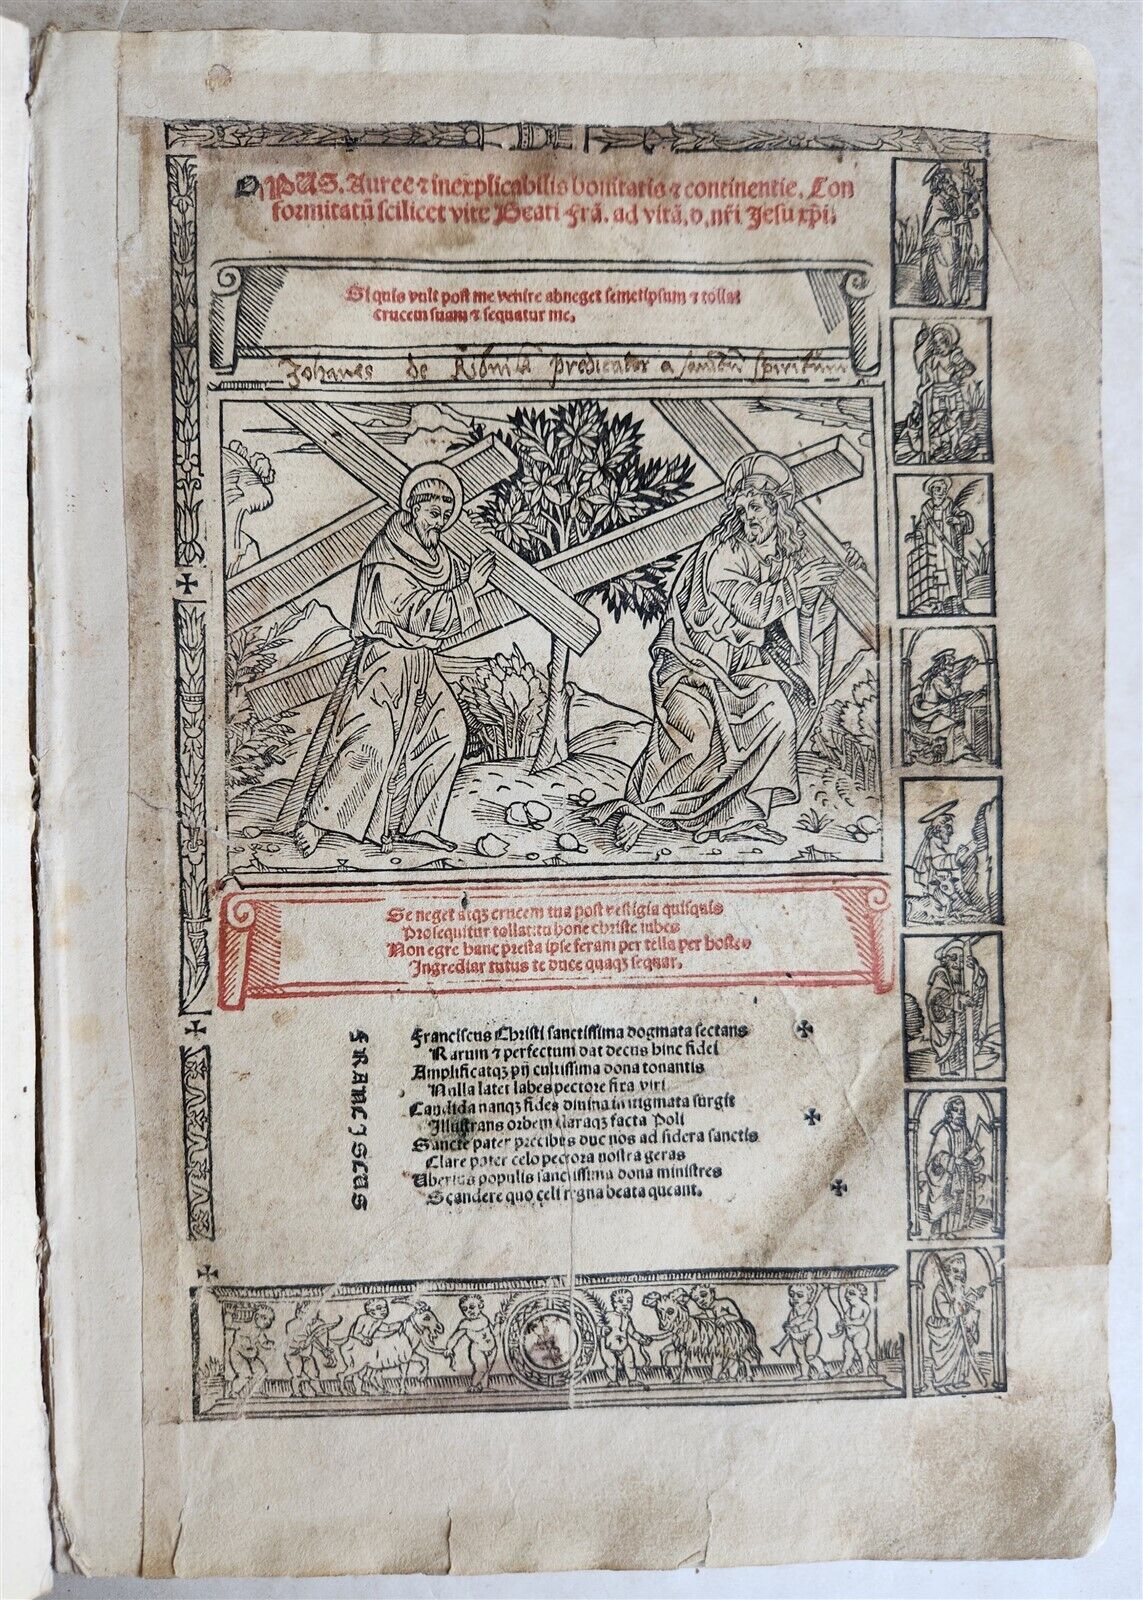 OPUS. Auree ⁊ inexplicabilis bonitatis ⁊ continentie. Con
formitatũ scilicet vite Beati Frã. ad vitã. d. nr̃i Jesu xp̃i.
Si quis vult post me venire abneget semetipsum ⁊ tollat
crucem suam ⁊ sequatur me.
Johanes de predicator spiritum
Se neget atqꝫ crucem tua post vestigia quisquis
Prosequitur tollat: tu bone christe iubes
Non egre hanc presta ipse feram per tella per hostes
Ingrediar tutus te duce quaqꝫ sequar.
FRANCISCUS
Franciscus Christi sanctissima dogmata sectans
Rarum ⁊ perfectum dat decus hinc fidei
Amplificatqꝫ pij cultissima dona tonantis
Nulla latet labes pectore fixa viri
Candida nanqꝫ fides divina in stigmata surgit
Illustrans orbem claraqꝫ facta Poli
Sancte pater precibus duc nos ad sidera sanctis
Clare pater celo pectora nostra geras
Uberius populis sanctissima dona ministres
Scandere quo celi regna beata queant.